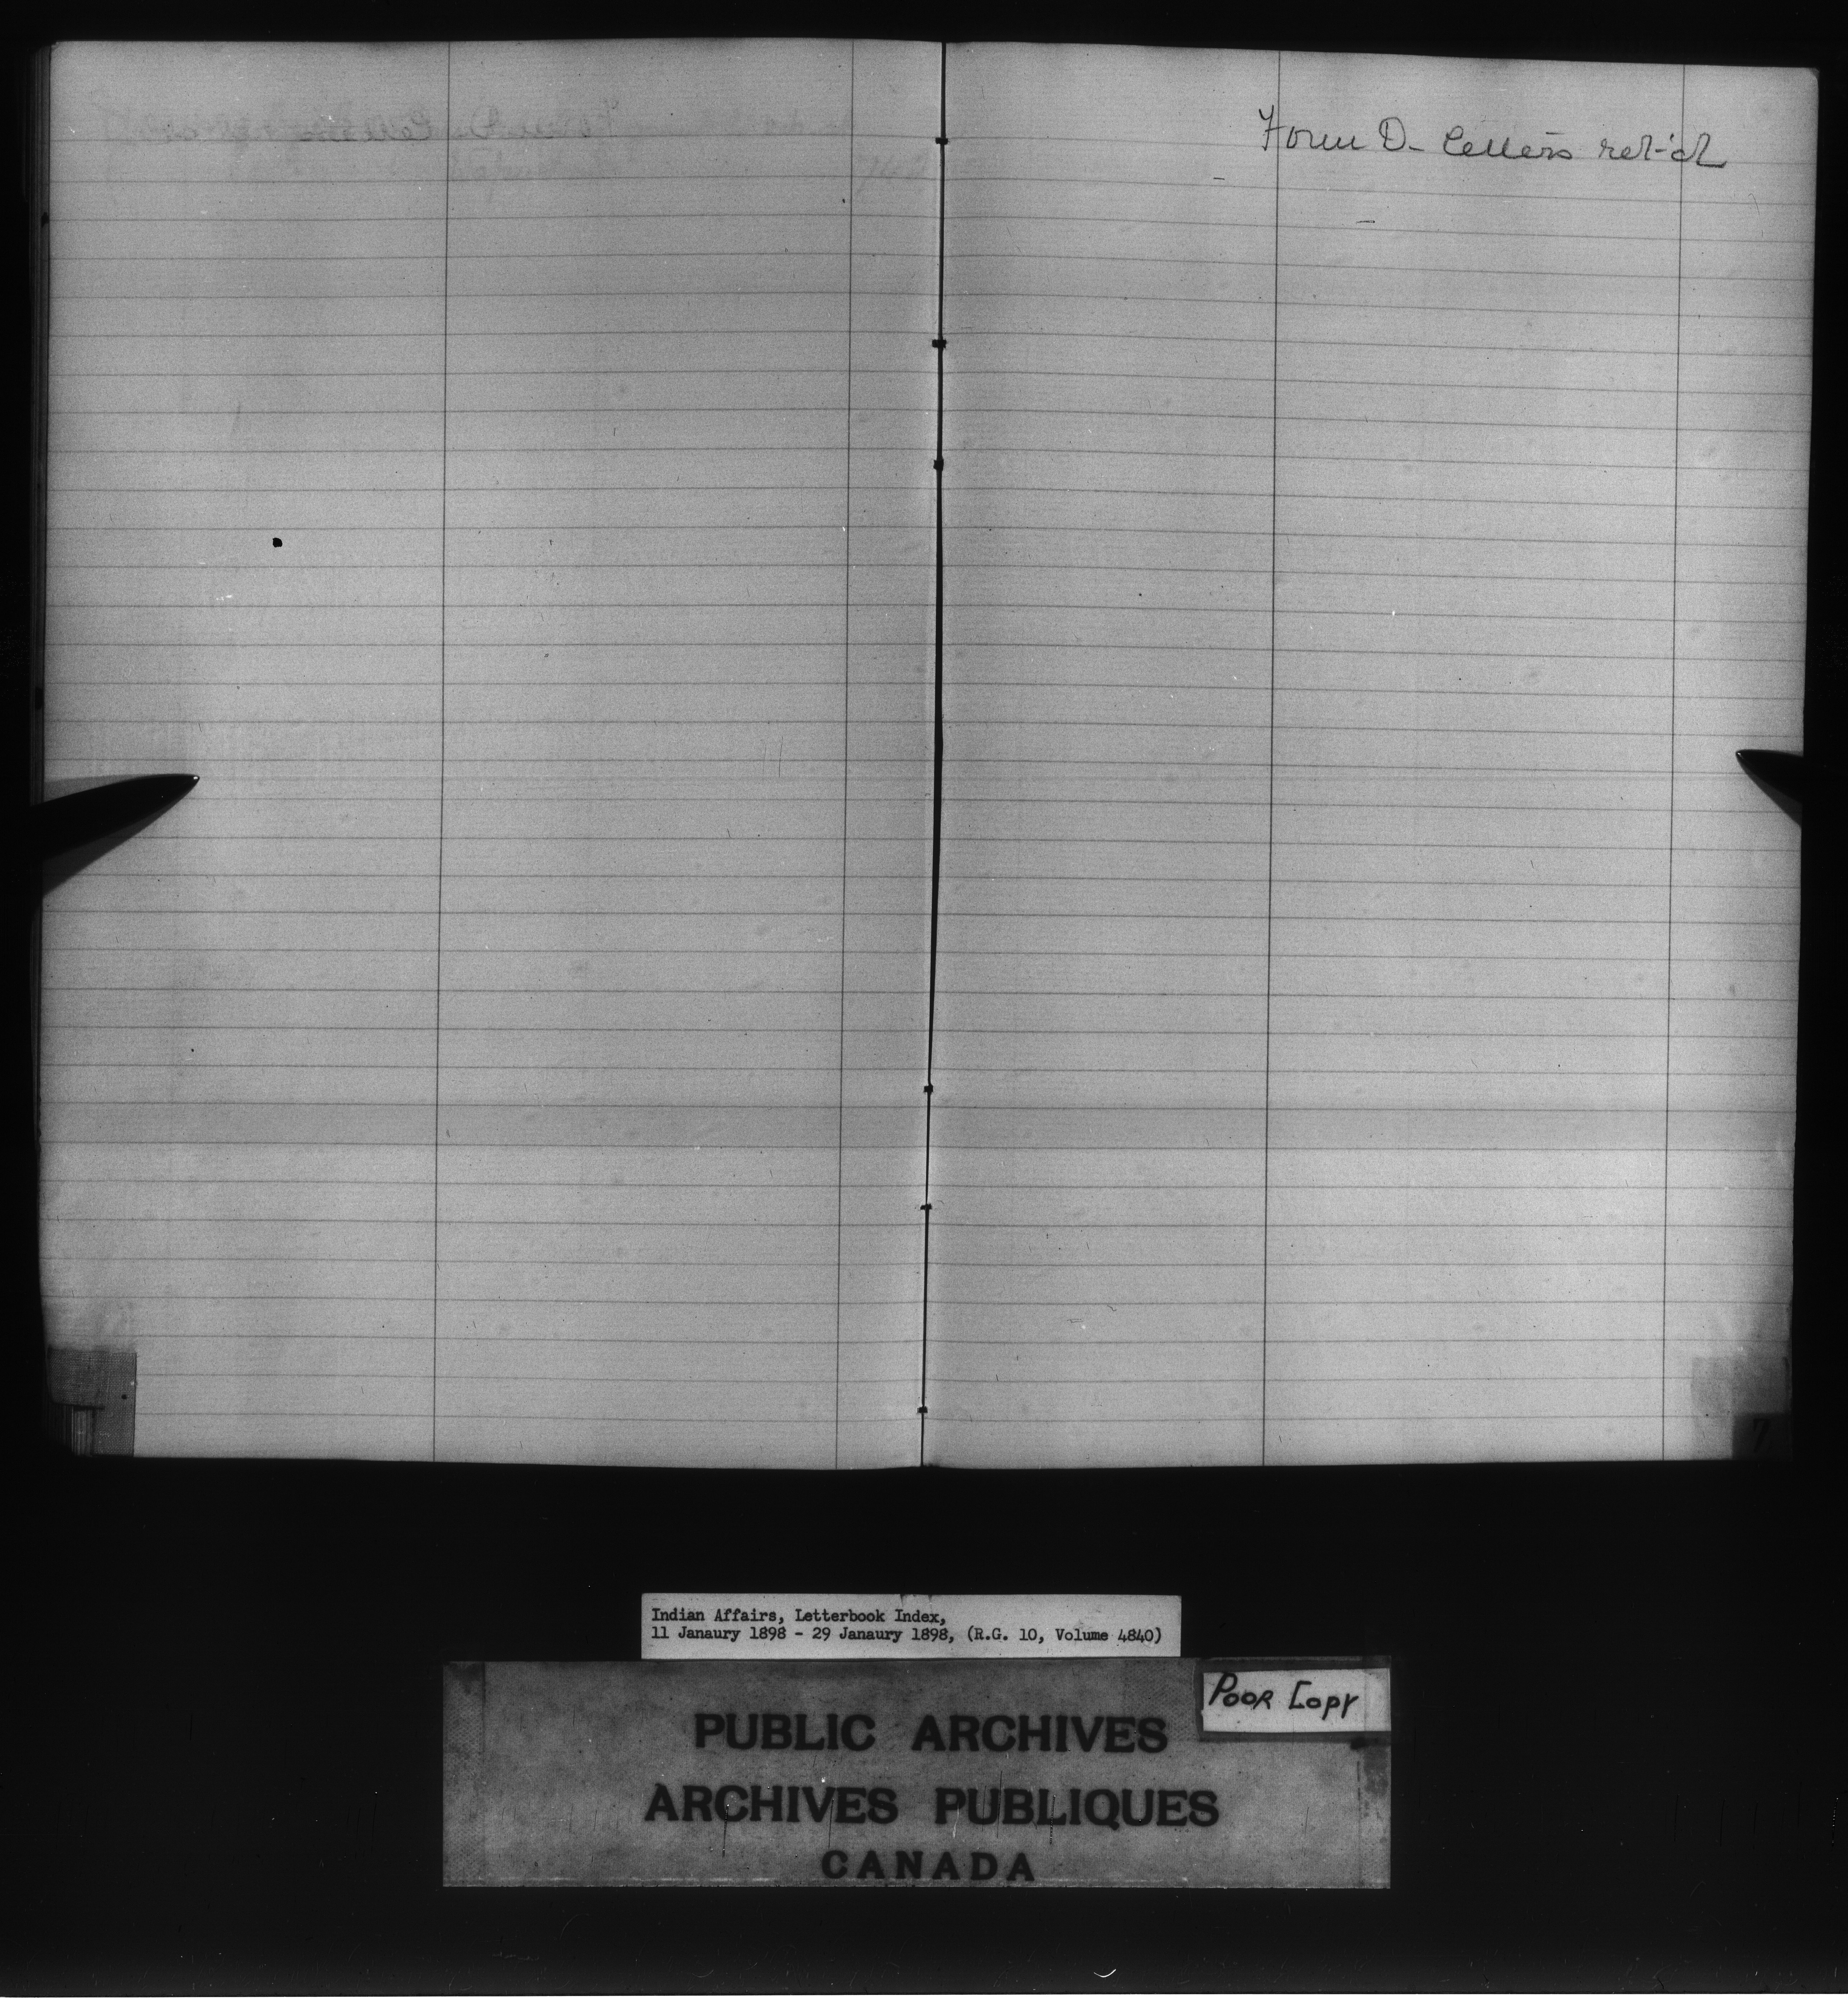 Form D- letters ret'd
Indian Affairs, Letterbook Index,
11 Janaury 1898 - 29 Janaury 1898, (R.G. 10, Volume 4840)
POOR COPY
PUBLIC ARCHIVES
ARCHIVES PUBLIQUES
CANADA